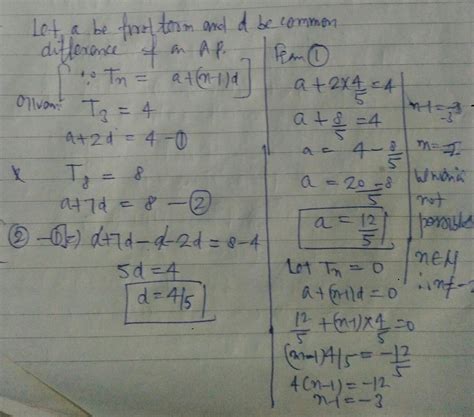 Let a be first term and d be common
difference of an A.P.
[∵ Tn = a+(n-1)d]
Given T₃ = 4
a+2d = 4 - ①
& T₈ = 8
a+7d = 8 - ②
② - ① ⇒ a+7d-a-2d = 8-4
5d = 4
d = 4/5
From ①
a + 2×4/5 = 4
a + 8/5 = 4
a = 4 - 8/5
a = 20-8/5
a = 12/5
Let Tn = 0
a+(n-1)d = 0
12/5 + (n-1)×4/5 = 0
(n-1)4/5 = -12/5
4(n-1) = -12
n-1 = -3
which is
not
possible
n∈N
∴ n≠-2